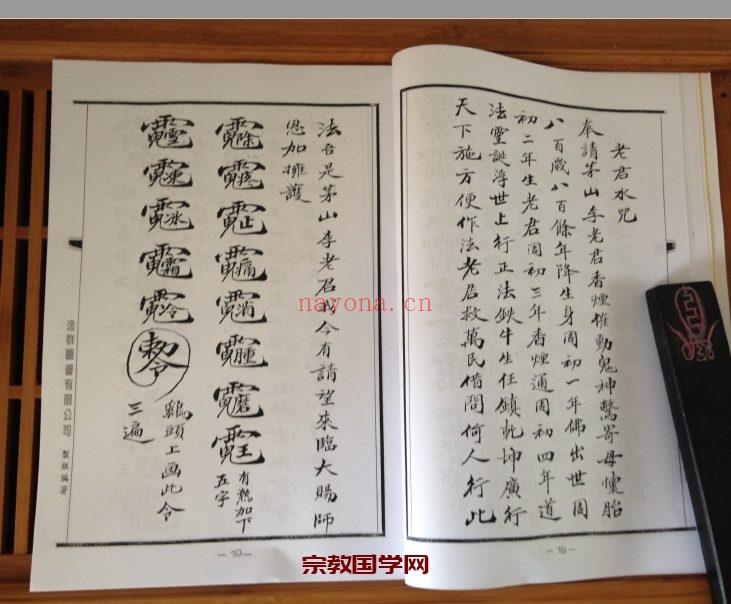 老君水咒
奉請茅山李老君香煙催動鬼神驚寄母懷胎
八百歲八百餘年降生身周初一年佛出世周
初二年生老君周初三年香煙通周初四年道
法靈誕浮世上行正法鉄牛生任鎮乾坤廣行
天下施方便作法老君救萬民借問何人行此
－18－
法吾是茅山李老君我今有請望來臨大賜師
恩加擁護
有熱加下
五字
敕令
雞頭上画此令
三遍
逸群圖書有限公司 製版編著
－19－
nayona.cn
宗教国学网